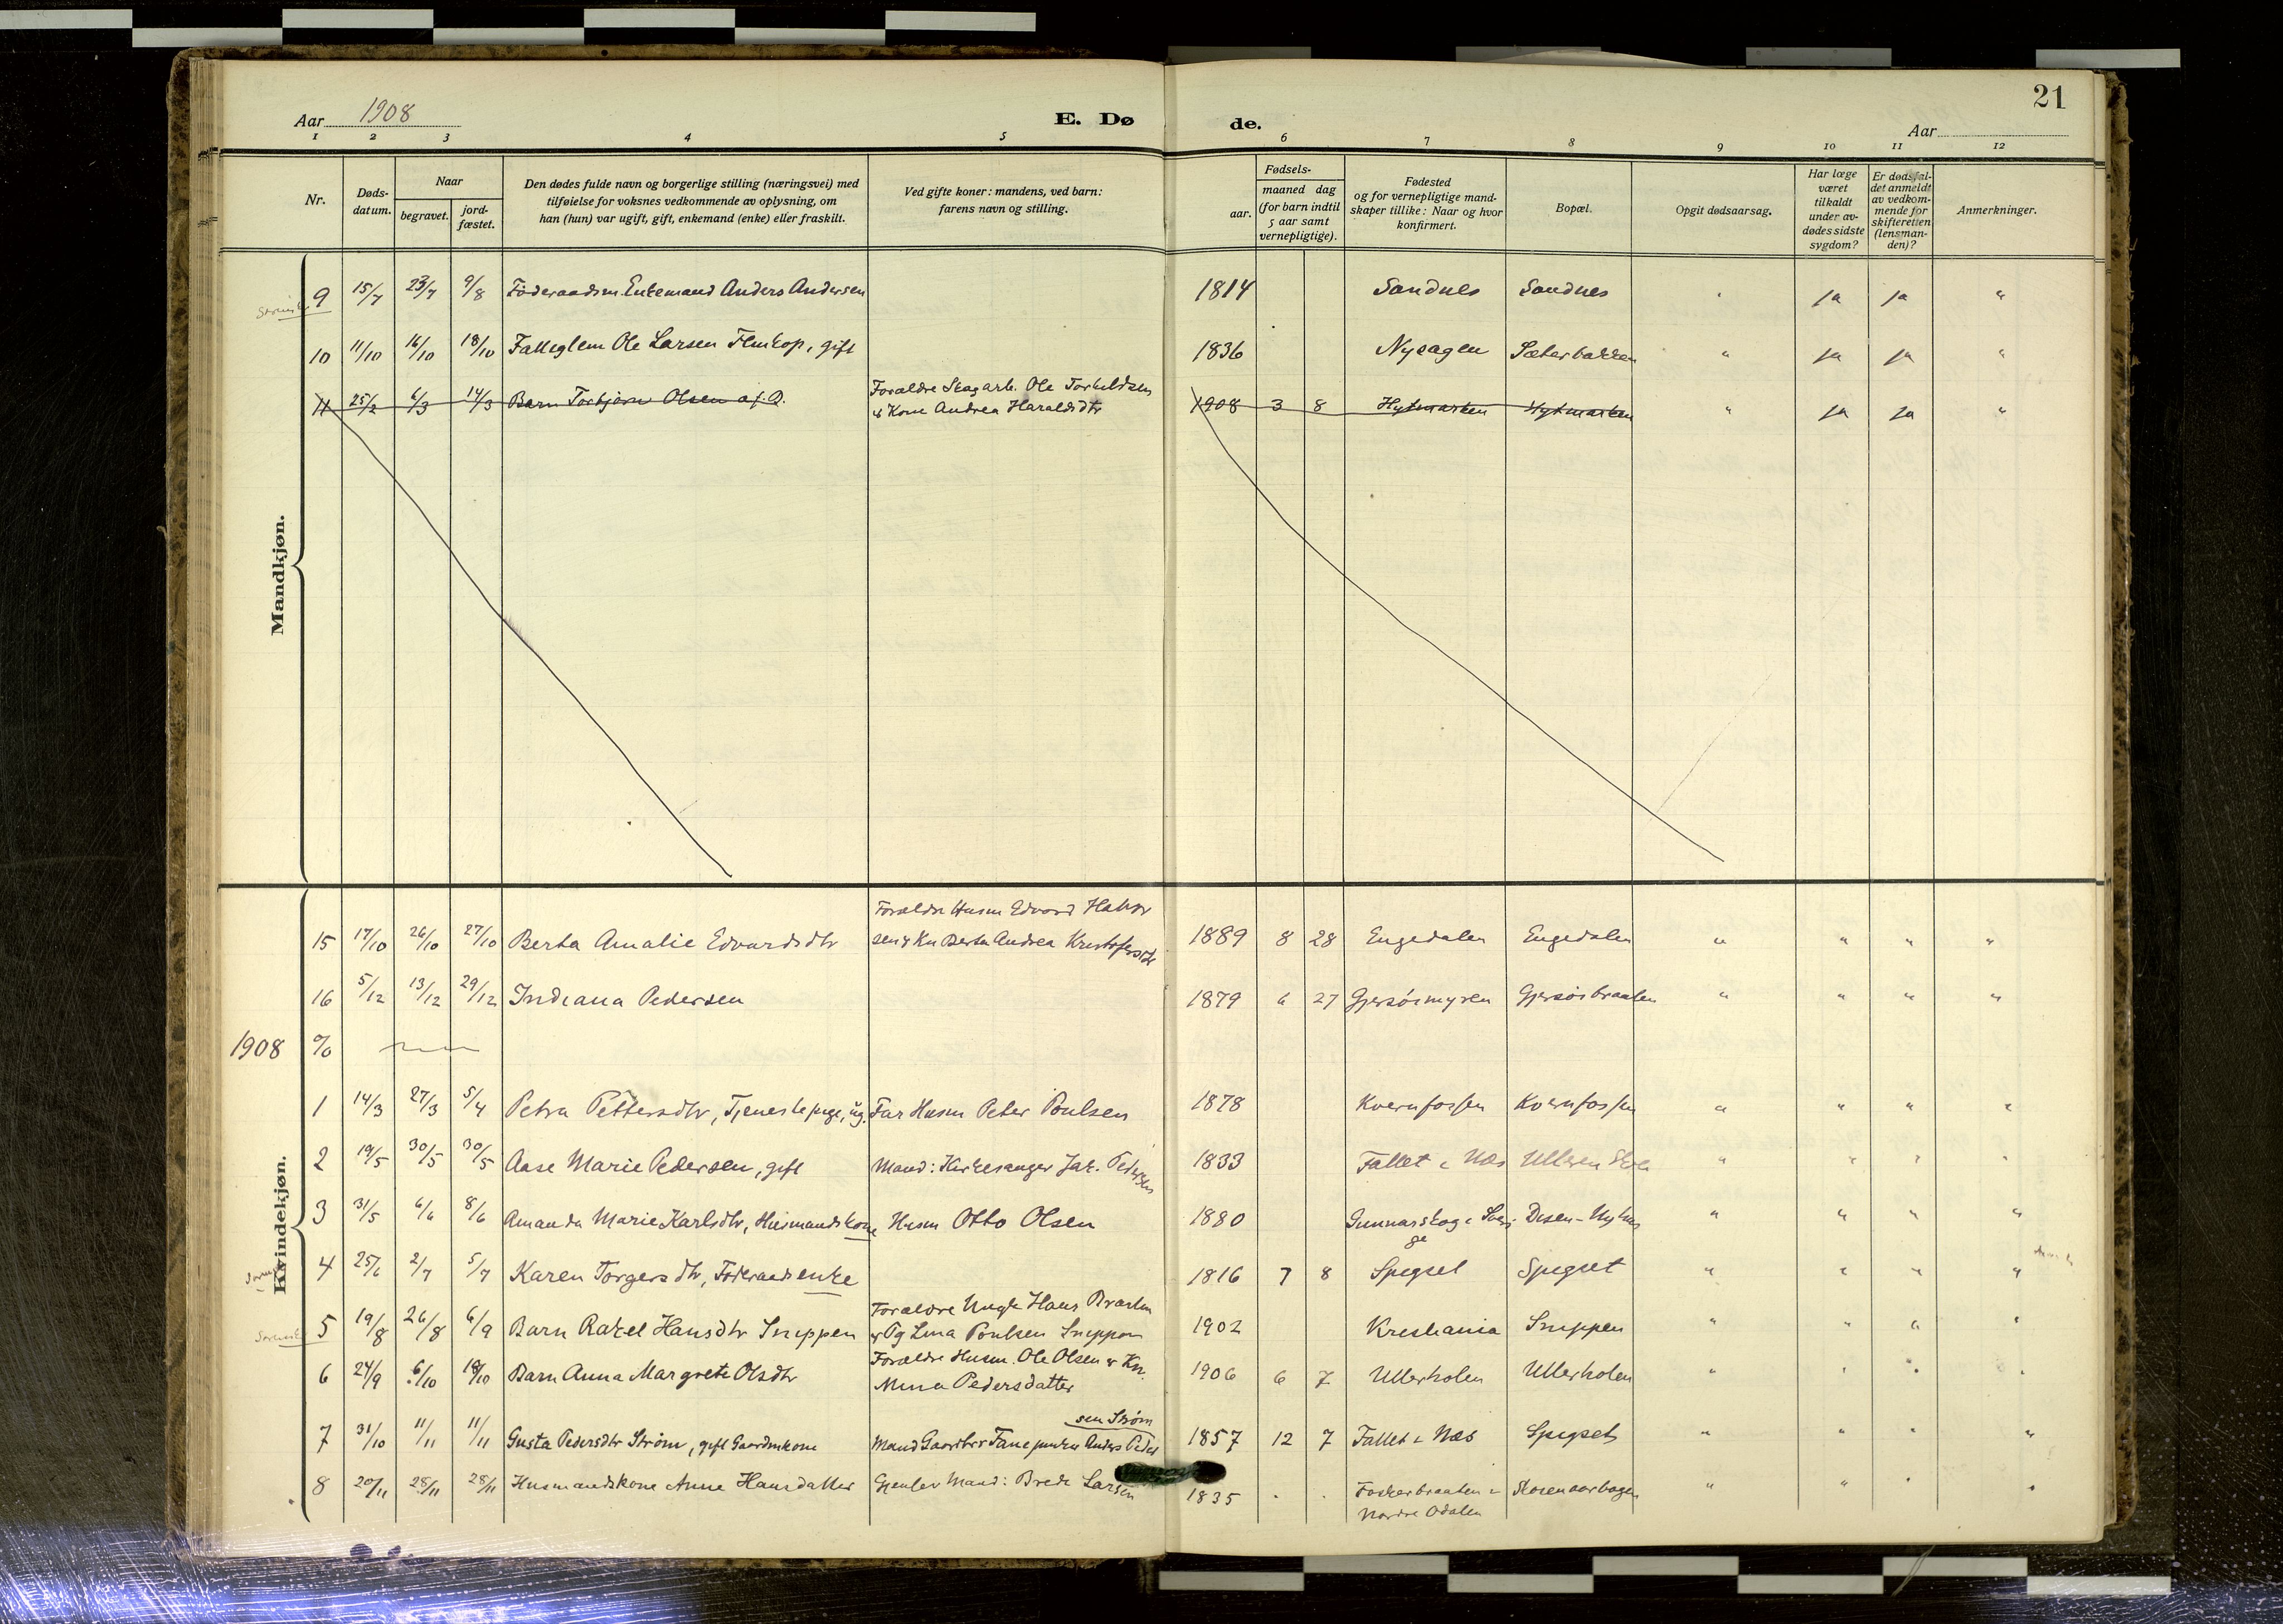 21
Aar 1908 E. Dø de. Aar
1 2 3 4 5 6 7 8 9 10 11 12
Nr.
Døds-
datum.
Naar
begravet.
jord-
fæstet.
Den dødes fulde navn og borgerlige stilling (næringsvei) med
tilføielse for voksnes vedkommende av oplysning, om
han (hun) var ugift, gift, enkemand (enke) eller fraskilt.
Ved gifte koner: mandens, ved barn:
farens navn og stilling.
Fødsels-
aar.
maaned dag
(for barn indtil
5 aar samt
vernepligtige).
Fødested
og for vernepligtige mand-
skaper tillike: Naar og hvor
konfirmert.
Bopæl.
Opgit dødsaarsag.
Har læge
været
tilkaldt
under av-
dødes sidste
sygdom?
Er dødsfal-
det anmeldt
av vedkom-
mende for
skifteretten
(lensman-
den)?
Anmerkninger.
Mandkjøn.
9 15/7 23/7 9/8 Føderaadsm. Enkemand Anders Andersen 1814 Sandnes Sandnes " ja ja "
10 11/10 16/10 18/10 Ole Larsen , gift 1836 Sæterbakken " ja ja "
Forældre Skogarb. Ole Torkildsen
11 25/2 6/3 14/3 Barn Torbjørn Olsen 1908 3 8 " ja ja "
& Kone Andrea Haraldsdtr
Kvindekjøn.
Forældre Husm Edvard Halvor
15 17/10 26/10 27/10 Berta Amalie Edvardsdtr 1889 8 28 Engedalen Engedalen " " " "
sen & Kn Berta Andrea Kristofersdtr
16 5/12 13/12 29/12 Indiana Pedersen 1879 6 27 Gjersøsmyren Gjersøsbraaten " " " "
1908 %
1 14/3 27/3 5/4 Petra Pettersdtr, Tjenestepige, ug. Far Husm Peter Poulsen 1878 Kvernfossen Kvernfossen " " " "
2 19/5 30/5 30/5 Aase Marie Pedersen, gift Mand: Kirkesanger Jak. Pedersen 1833 Fallet i Næs Ulleren Skole " " " "
3 31/5 6/6 8/6 Amanda Marie Karlsdtr, Husmandskone Husm Otto Olsen 1880 Gunnarskog i Sveri- Disen-Nyhus " " " "
ge
4 25/6 2/7 5/7 Karen Torgersdtr, Føderaadsenke 1816 7 8 Spigset Spigset " " " "
Forældre Ungk Hans Braaten
5 19/8 26/8 6/9 Barn Rakel Hansdtr Snippen & Pg Lina Poulsen Snippen 1902 Kristiania Snippen " " " "
Forældre Husm. Ole Olsen & Kn.
6 24/9 6/10 18/10 Barn Anna Margrete Olsdtr 1906 6 7 Ullerholen Ullerholen " " " "
Mina Pedersdatter
sen Strøm
7 31/10 11/11 11/11 Gusta Pedersdtr Strøm, gift Gaardmkone Mand Gaardbr Anders Peder 1857 12 7 Fallet i Næs Spigset " " " "
8 20/11 28/11 28/11 Husmandskone Anne Hansdatter Gjenlev Mand: Brede Larsen 1835 i " " " "
Nordre Odalen